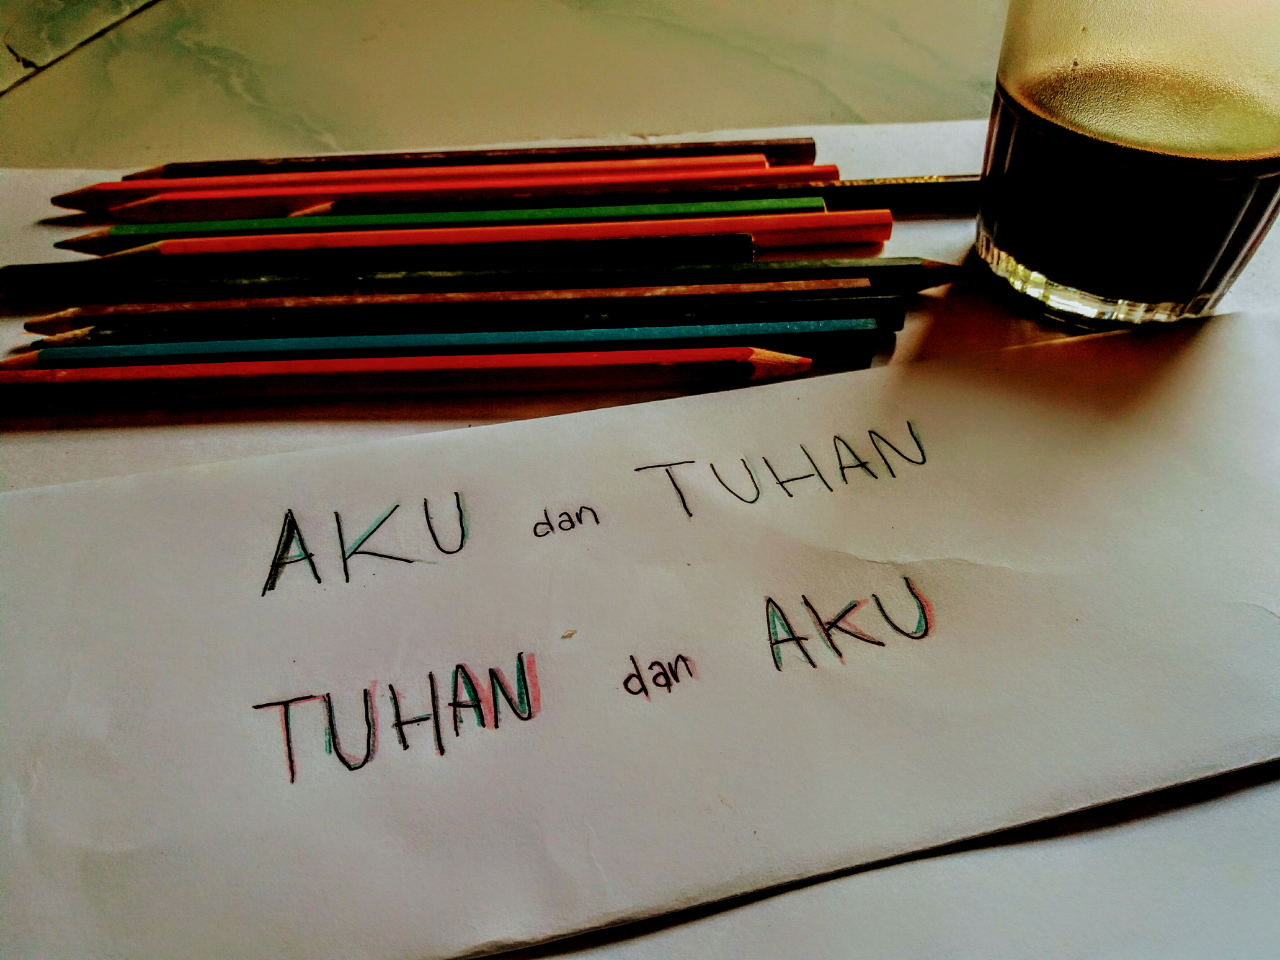 AKU dan TUHAN
TUHAN dan AKU